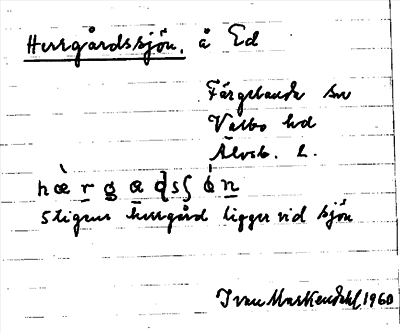 Herrgårdssjön, å Ed
Färgelanda sn
Valbo hd
Älvsb. L.
hæ̀rgaɖsʃón
Stigens herrgård ligger vid sjön
Ivan Markendahl, 1960